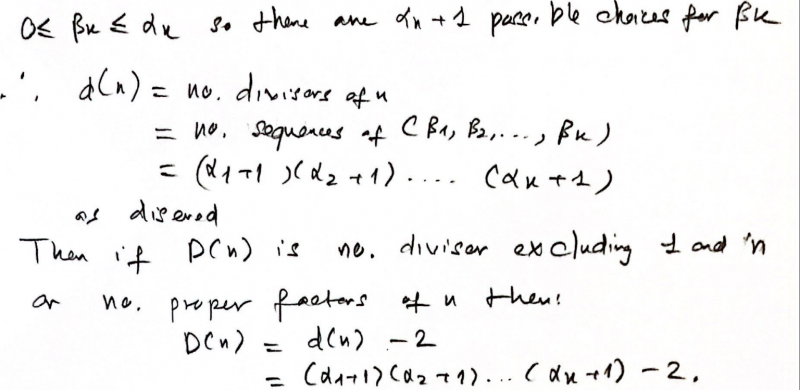 0 ≤ βk ≤ αk so there are αk + 1 possible choices for βk
∴ d(n) = no. divisors of n
= no. sequences of (β1, β2, ..., βk)
= (α1+1)(α2+1).... (αk+1)
as disered
Then if D(n) is no. divisor excluding 1 and n
or no. proper factors of n then:
D(n) = d(n) - 2
= (α1+1)(α2+1)...(αk+1) - 2.